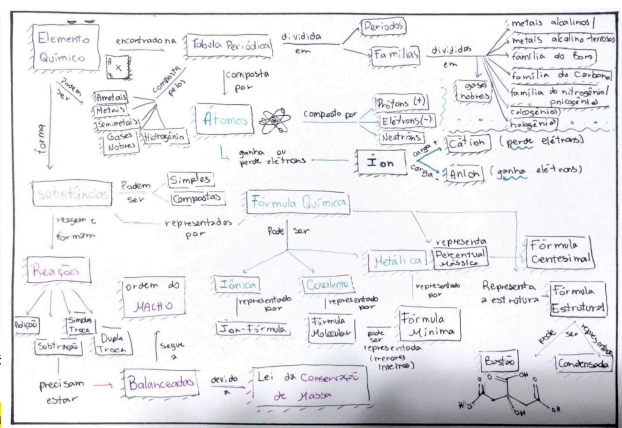 Elemento
Químico
encontrado na
Tabela Periódica
dividida
em
Períodos
Famílias
divididas
em
metais alcalinos/
metais alcalino-terrosos
família do Boro
família do Carbono
família do nitrogênio/
pnicogênios
calcogênios
halogênios
gases
nobres
X
Podem
ser
composta
pelos
Ametais
Metais
Semimetais
Gases
Nobres
Hidrogênio
composta
por
Átomos
composto por
Prótons (+)
Elétrons (-)
Neutrons
ganha ou
perde elétrons
Íon
carga +
Cátion (perde elétrons)
carga -
Aníon (ganha elétrons)
forma
Substâncias
Podem
ser
Simples
Compostas
representadas
por
Fórmula Química
Pode ser
Iônica
representado
por
Íon-Fórmula
Covalente
representado
por
Fórmula
Molecular
Metálica
representado
por
Fórmula
Mínima
pode
ser
representada
(menores
inteiros)
representa
Percentual
Mássico
Fórmula
Centesimal
Representa
a estrutura
Fórmula
Estrutural
pode
ser
representada
Bastão
Condensada
HO
O
O
OH
O
OH
OH
reagem e
formam
Reações
Adição
Subtração
Simples
Troca
Dupla
Troca
precisam
estar
Balanceadas
segue
a
ordem do
MACHO
devido
a
Lei da Conservação
de Massa